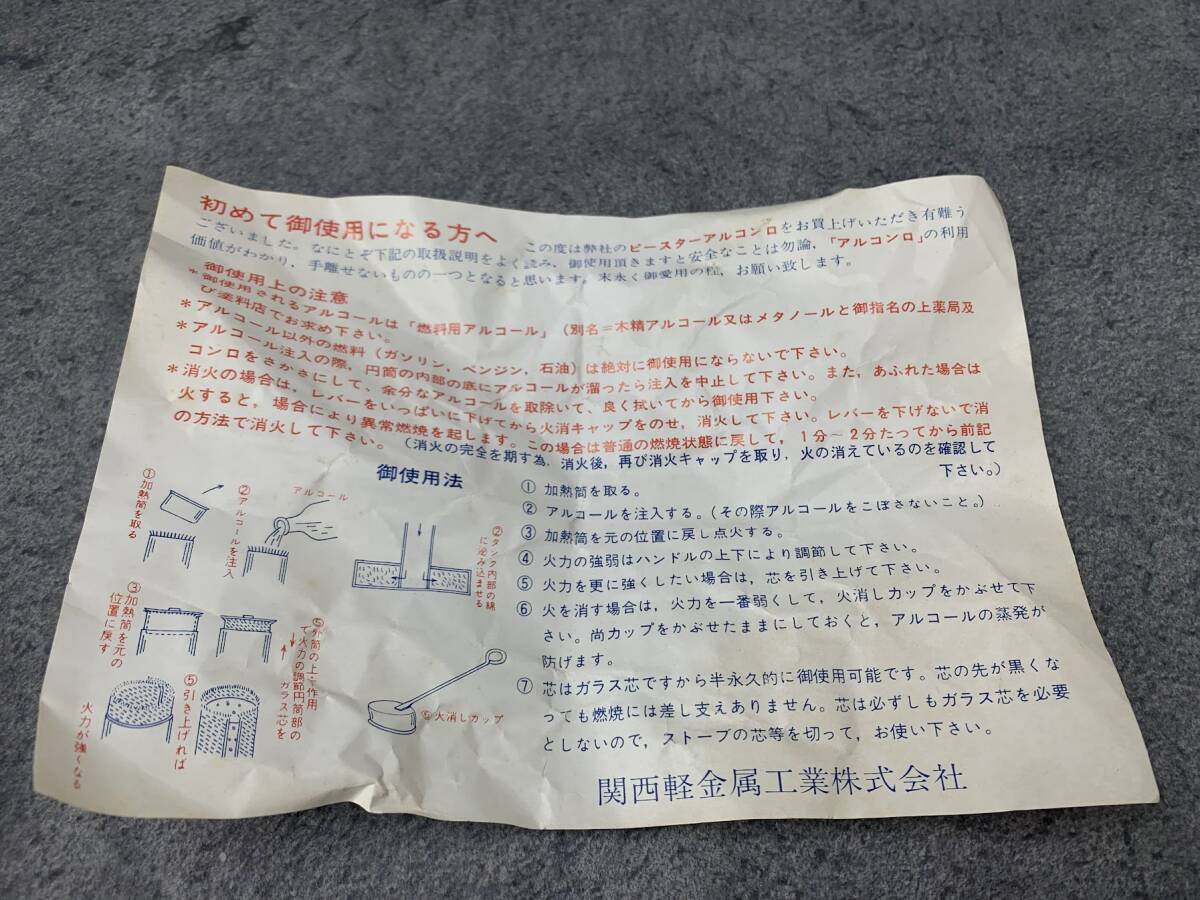 初めて御使用になる方へ
この度は弊社のピースターアルコンロをお買上げいただき有難う
ございました。なにとぞ下記の取扱説明をよく読み，御使用頂きますと安全なことは勿論，「アルコンロ」の利用
価値がわかり，手離せないものの一つとなると思います。末永く御愛用の程，お願い致します。
御使用上の注意
＊御使用されるアルコールは「燃料用アルコール」（別名＝木精アルコール又はメタノールと御指名の上薬局及
び塗料店でお求め下さい。
＊アルコール以外の燃料（ガソリン，ベンジン，石油）は絶対に御使用にならないで下さい。
＊アルコール注入の際，円筒の内部の底にアルコールが溜ったら注入を中止して下さい。また，あふれた場合は
コンロをさかさにして、余分なアルコールを取除いて、良く拭いてから御使用下さい。
＊消火の場合は，レバーをいっぱいに下げてから火消キャップをのせ，消火して下さい。レバーを下げないで消
火すると，場合により異常燃焼を起します。この場合は普通の燃焼状態に戻して，1分～2分たってから前記
の方法で消火して下さい。（消火の完全を期す為，消火後，再び消火キャップを取り，火の消えているのを確認して
下さい。）
御使用法
①加熱筒を取る
②アルコールを注入
アルコール
②タンク内部の綿
に泌み込ませる
③加熱筒を元の
位置に戻す
⑤外筒の上下作用
で火力の調節円筒部の
ガラス芯を
⑤引き上げれば
火力が強くなる
⑥火消しカップ
① 加熱筒を取る。
② アルコールを注入する。（その際アルコールをこぼさないこと。）
③ 加熱筒を元の位置に戻し点火する。
④ 火力の強弱はハンドルの上下により調節して下さい。
⑤ 火力を更に強くしたい場合は，芯を引き上げて下さい。
⑥ 火を消す場合は，火力を一番弱くして，火消しカップをかぶせて下
さい。尚カップをかぶせたままにしておくと，アルコールの蒸発が
防げます。
⑦ 芯はガラス芯ですから半永久的に御使用可能です。芯の先が黒くな
っても燃焼には差し支えありません。芯は必ずしもガラス芯を必要
としないので，ストーブの芯等を切って，お使い下さい。
関西軽金属工業株式会社